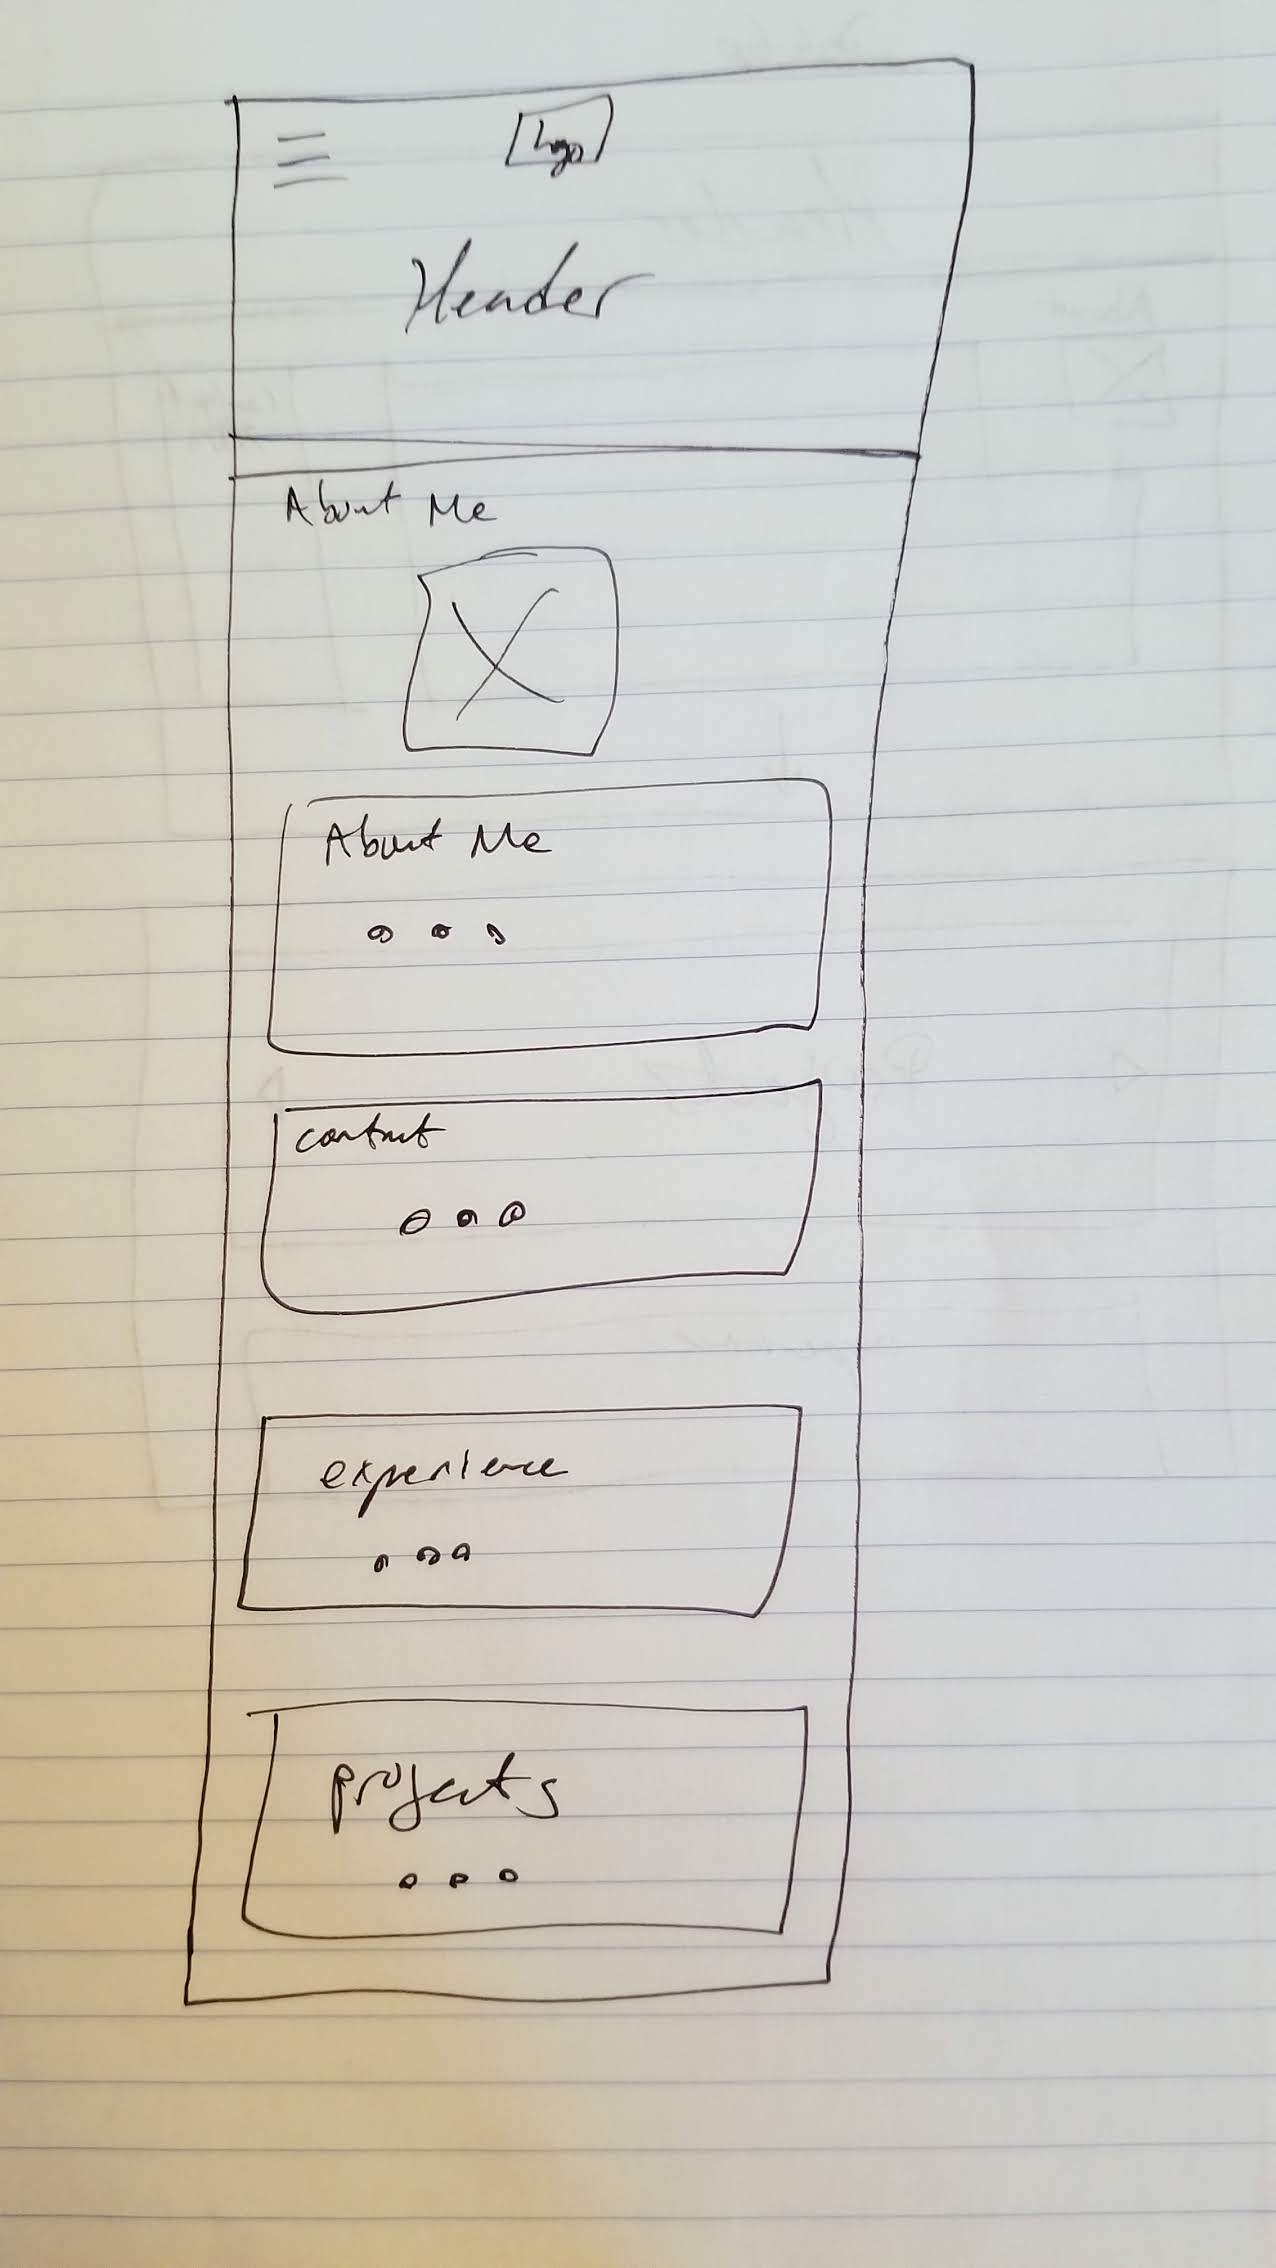 Logo
Header
About Me
About Me
contact
experience
projects